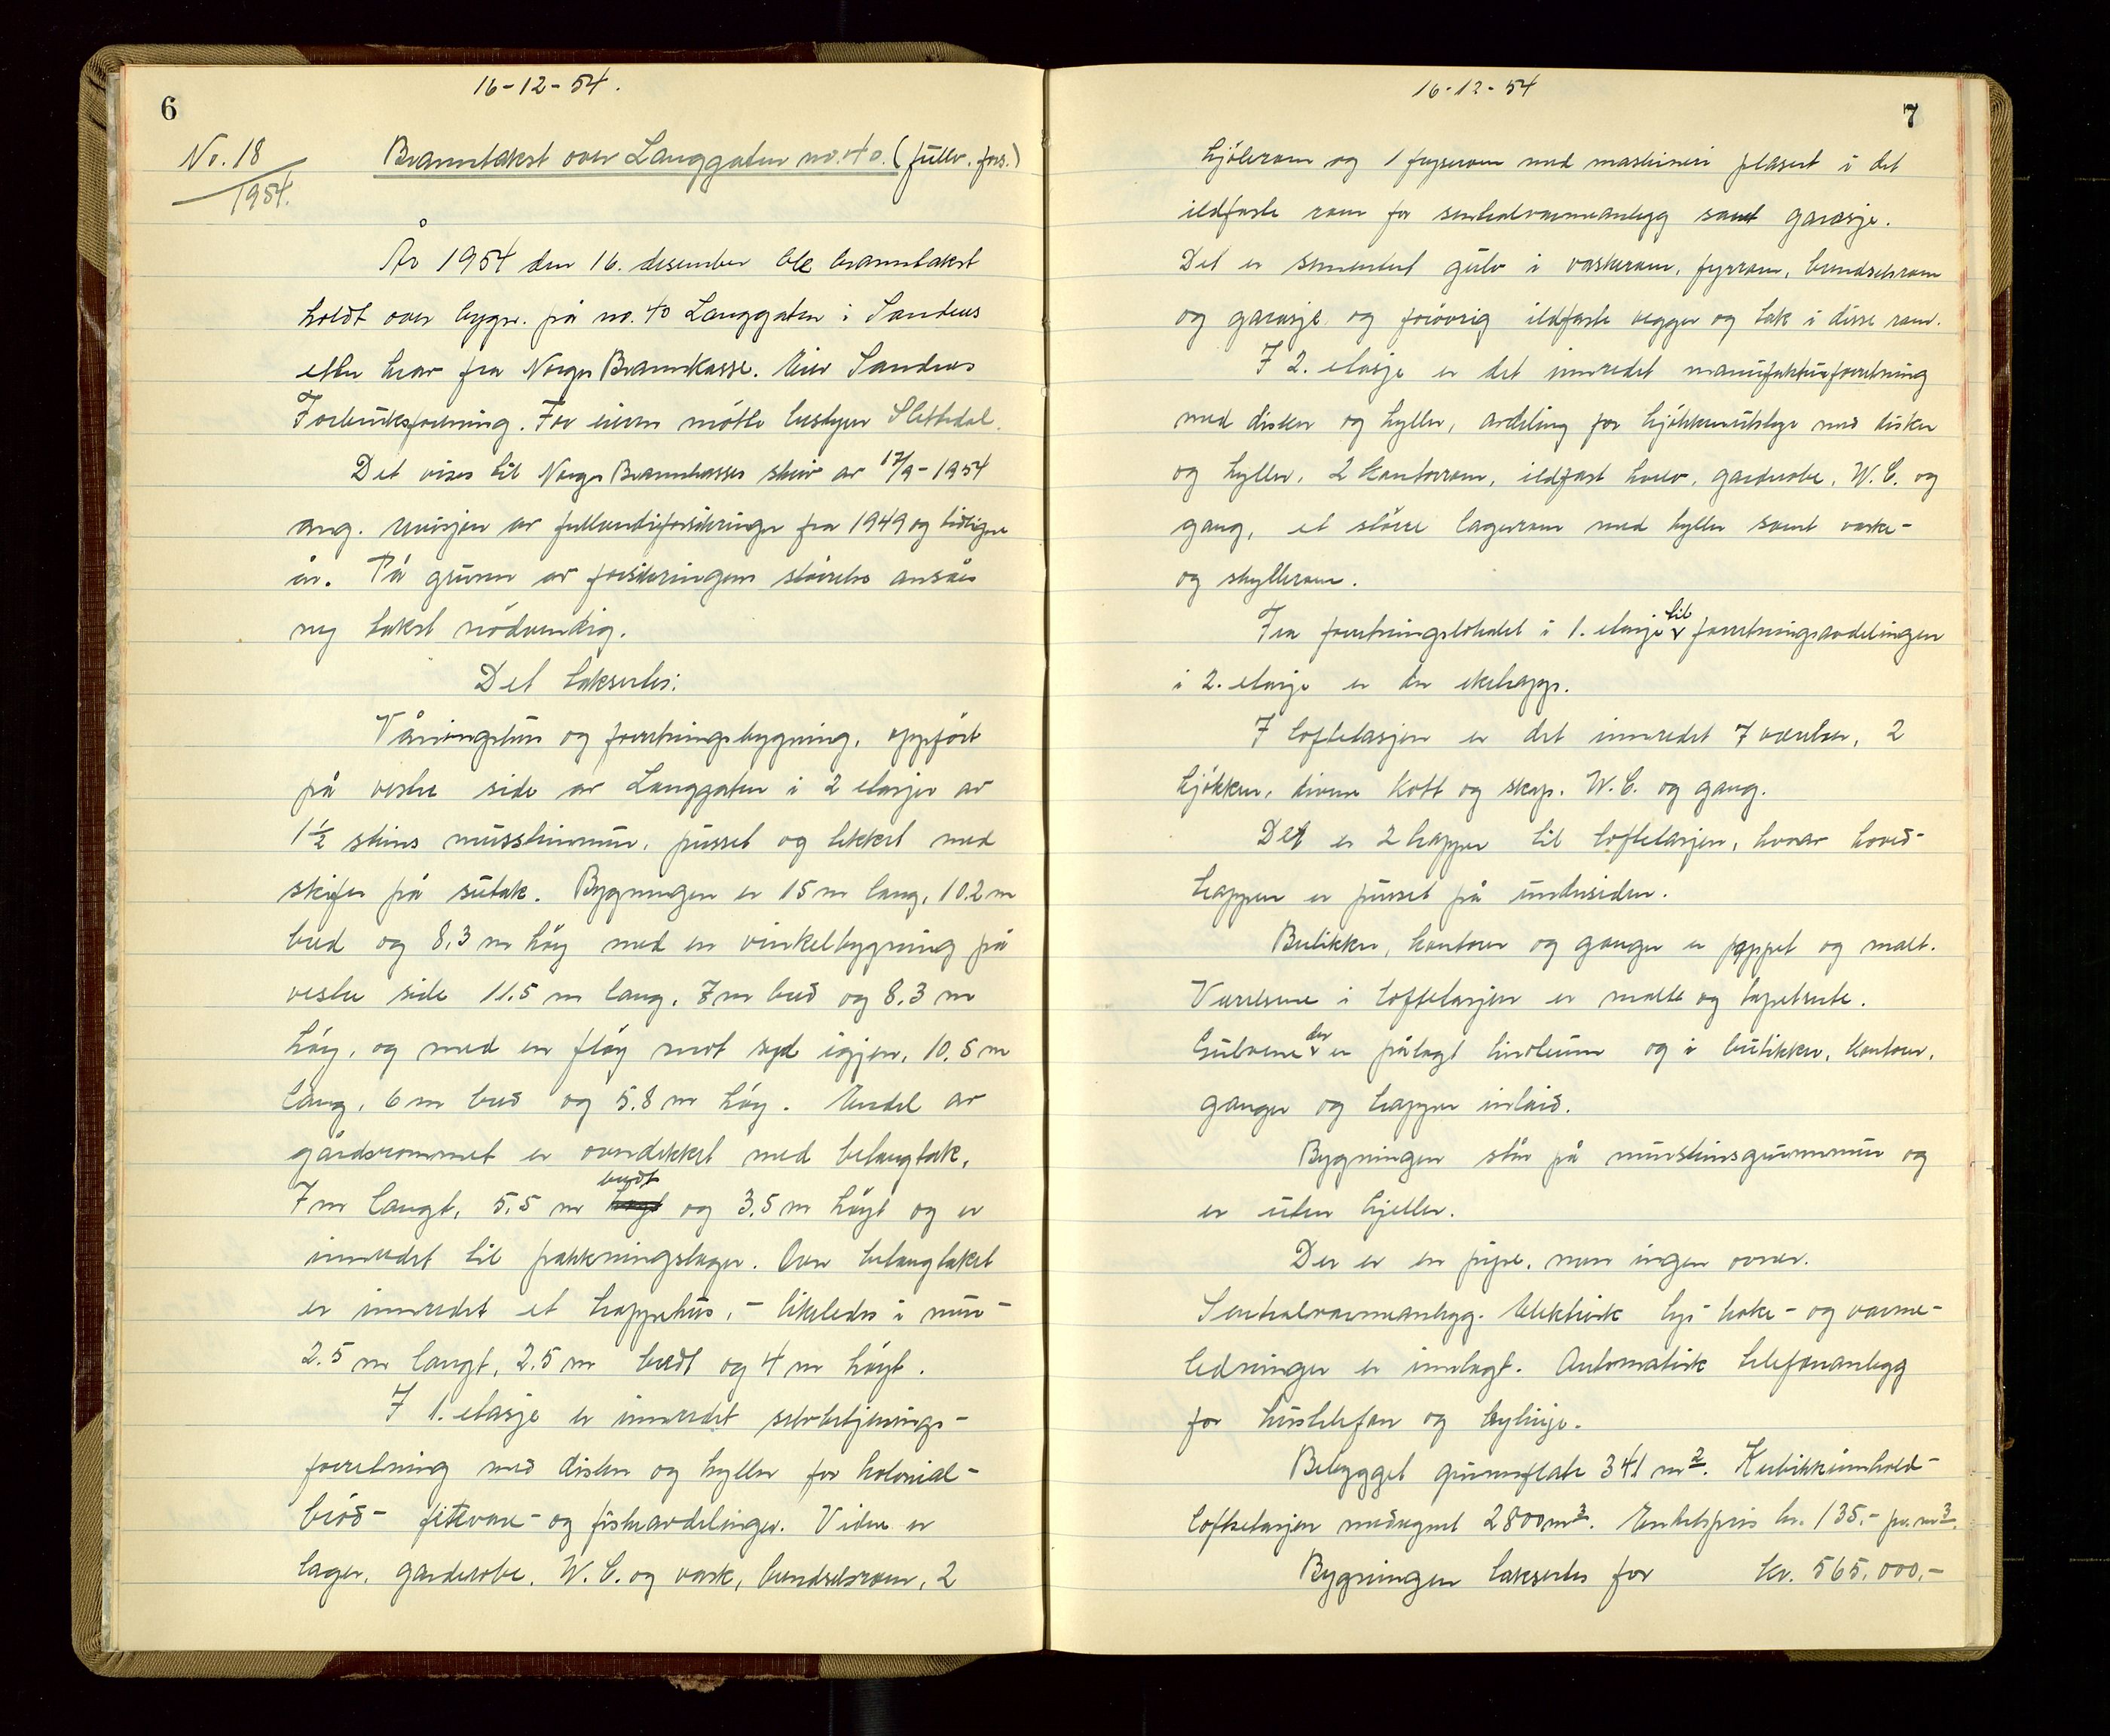 16-12-54.
6
No. 18
1954.
Branntakst over Langgaten no. 40. (fullv. fors.)
År 1954 den 16. desember ble branntakst
holdt over bygn. på no. 40 Langgaten i Sandnes
etter krav fra Norges Brannkasse. Eier Sandnes
Forbruksforening. For eieren møtte bestyrer Slettedal.
Det vises til Norges Brannkasses skriv av 17/9-1954
ang. revisjon av fullverdiforsikringer fra 1949 og tidligere
år. På grunn av forsikringens størrelse ansåes
ny takst nödvendig.
Det takseres:
Våningshus og forretningsbygning, oppfört
på vestre side av Langgaten i 2 etasjer av
1½ stens mursteinmur, pusset og tekket med
skifer på sutak. Bygningen er 15 m lang, 10.2 m
bred og 8.3 m höy med en vinkelbygning på
vestre side 11.5 m lang, 7 m bred og 8.3 m
höy, og med en flöy mot syd igjen, 10.5 m
lang, 6 m bred og 5.8 m höy. Endel av
gårdsrommet er overdekket med betongtak,
7 m langt, 5.5 m bredt og 3.5 m höyt og er
innredet til pakkningslager. Over betongtaket
er innredet et trappehus, - likeledes i mur -
2.5 m langt, 2.5 m bredt og 4 m höyt.
I 1. etasje er innredet selvbetjenings-
forretning med disker og hyller for kolonial-
bröd- fetevare- og fiskeavdelinger. Videre er
lager, garderobe, W.C. og vask, brendselsrom, 2
16-12-54
7
kjölerom og 1 fryserom med maskineri plasert i det
ildfaste rom for sentralvarmeanlegg samt garasje.
Det er sementert gulv i vaskerom, fyrrom, brendselsrom
og garasje og forövrig ildfaste vegger og tak i disse rom.
I 2. etasje er det innredet manufakturforretning
med disker og hyller, avdeling for kjökkenutstyr med disker
og hyller, 2 kontorrom, ildfast hvelv, garderobe, W.C. og
gang, et större lagerrom med hyller samt vaske-
og skyllerom.
Fra forretningslokalet i 1. etasje til forretningsavdelingen
i 2. etasje er der eketrapp.
I loftetasjen er det innredet 7 værelser, 2
kjökken, diverse kott og skap. W.C. og gang.
Det er 2 trapper til loftetasjen, hvorav hoved-
trappen er pusset på undersiden.
Butikker, kontorer og ganger er pappet og malt.
Værelsene i loftetasjen er malte og tapetserte.
Gulvene der er pålagt linoleum og i butikker, kontorer,
ganger og trapper inlaid.
Bygningen står på murstensgrunnmur og
er uten kjeller.
Der er en pipe, men ingen ovner.
Sentralvarmeanlegg. Elektrisk lys- koke- og varme-
ledninger er innlagt. Automatisk telefonanlegg
for hustelefon og bylinje.
Bebygget grunnflate 341 m². Kubikkinnhold -
loftsetasjen medregnet 2800 m³. Enhetspris kr. 135.- pr. m³.
Bygningen takseres for kr. 565.000,-